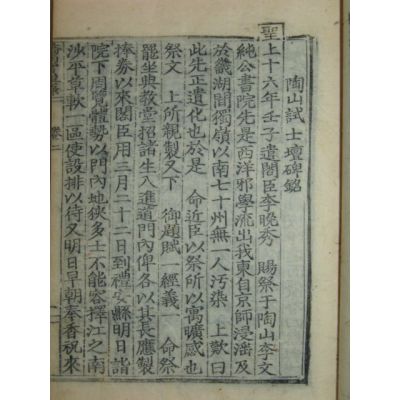 陶山試士壇碑銘
聖上十六年壬子遣閣臣李晚秀 賜祭于陶山李文
純公書院先是西洋邪學流出我東自京師浸潘及
於畿湖間獨嶺以南七十州無一人汚染 上歎曰
此先正遺化也於是 命近臣以祭所以寓曠感也
祭文 上所親製又下 御題賦一經義一 命祭
罷坐典敎堂招諸生入進道門內俾各以其長應製
捧券以來閣臣用三月二十二日到禮安縣明日詣
院下周覽體勢以門內地狹多士不能容擇江之南
沙平草軟一區使設排以待又明日早朝奉香祝來
卷二